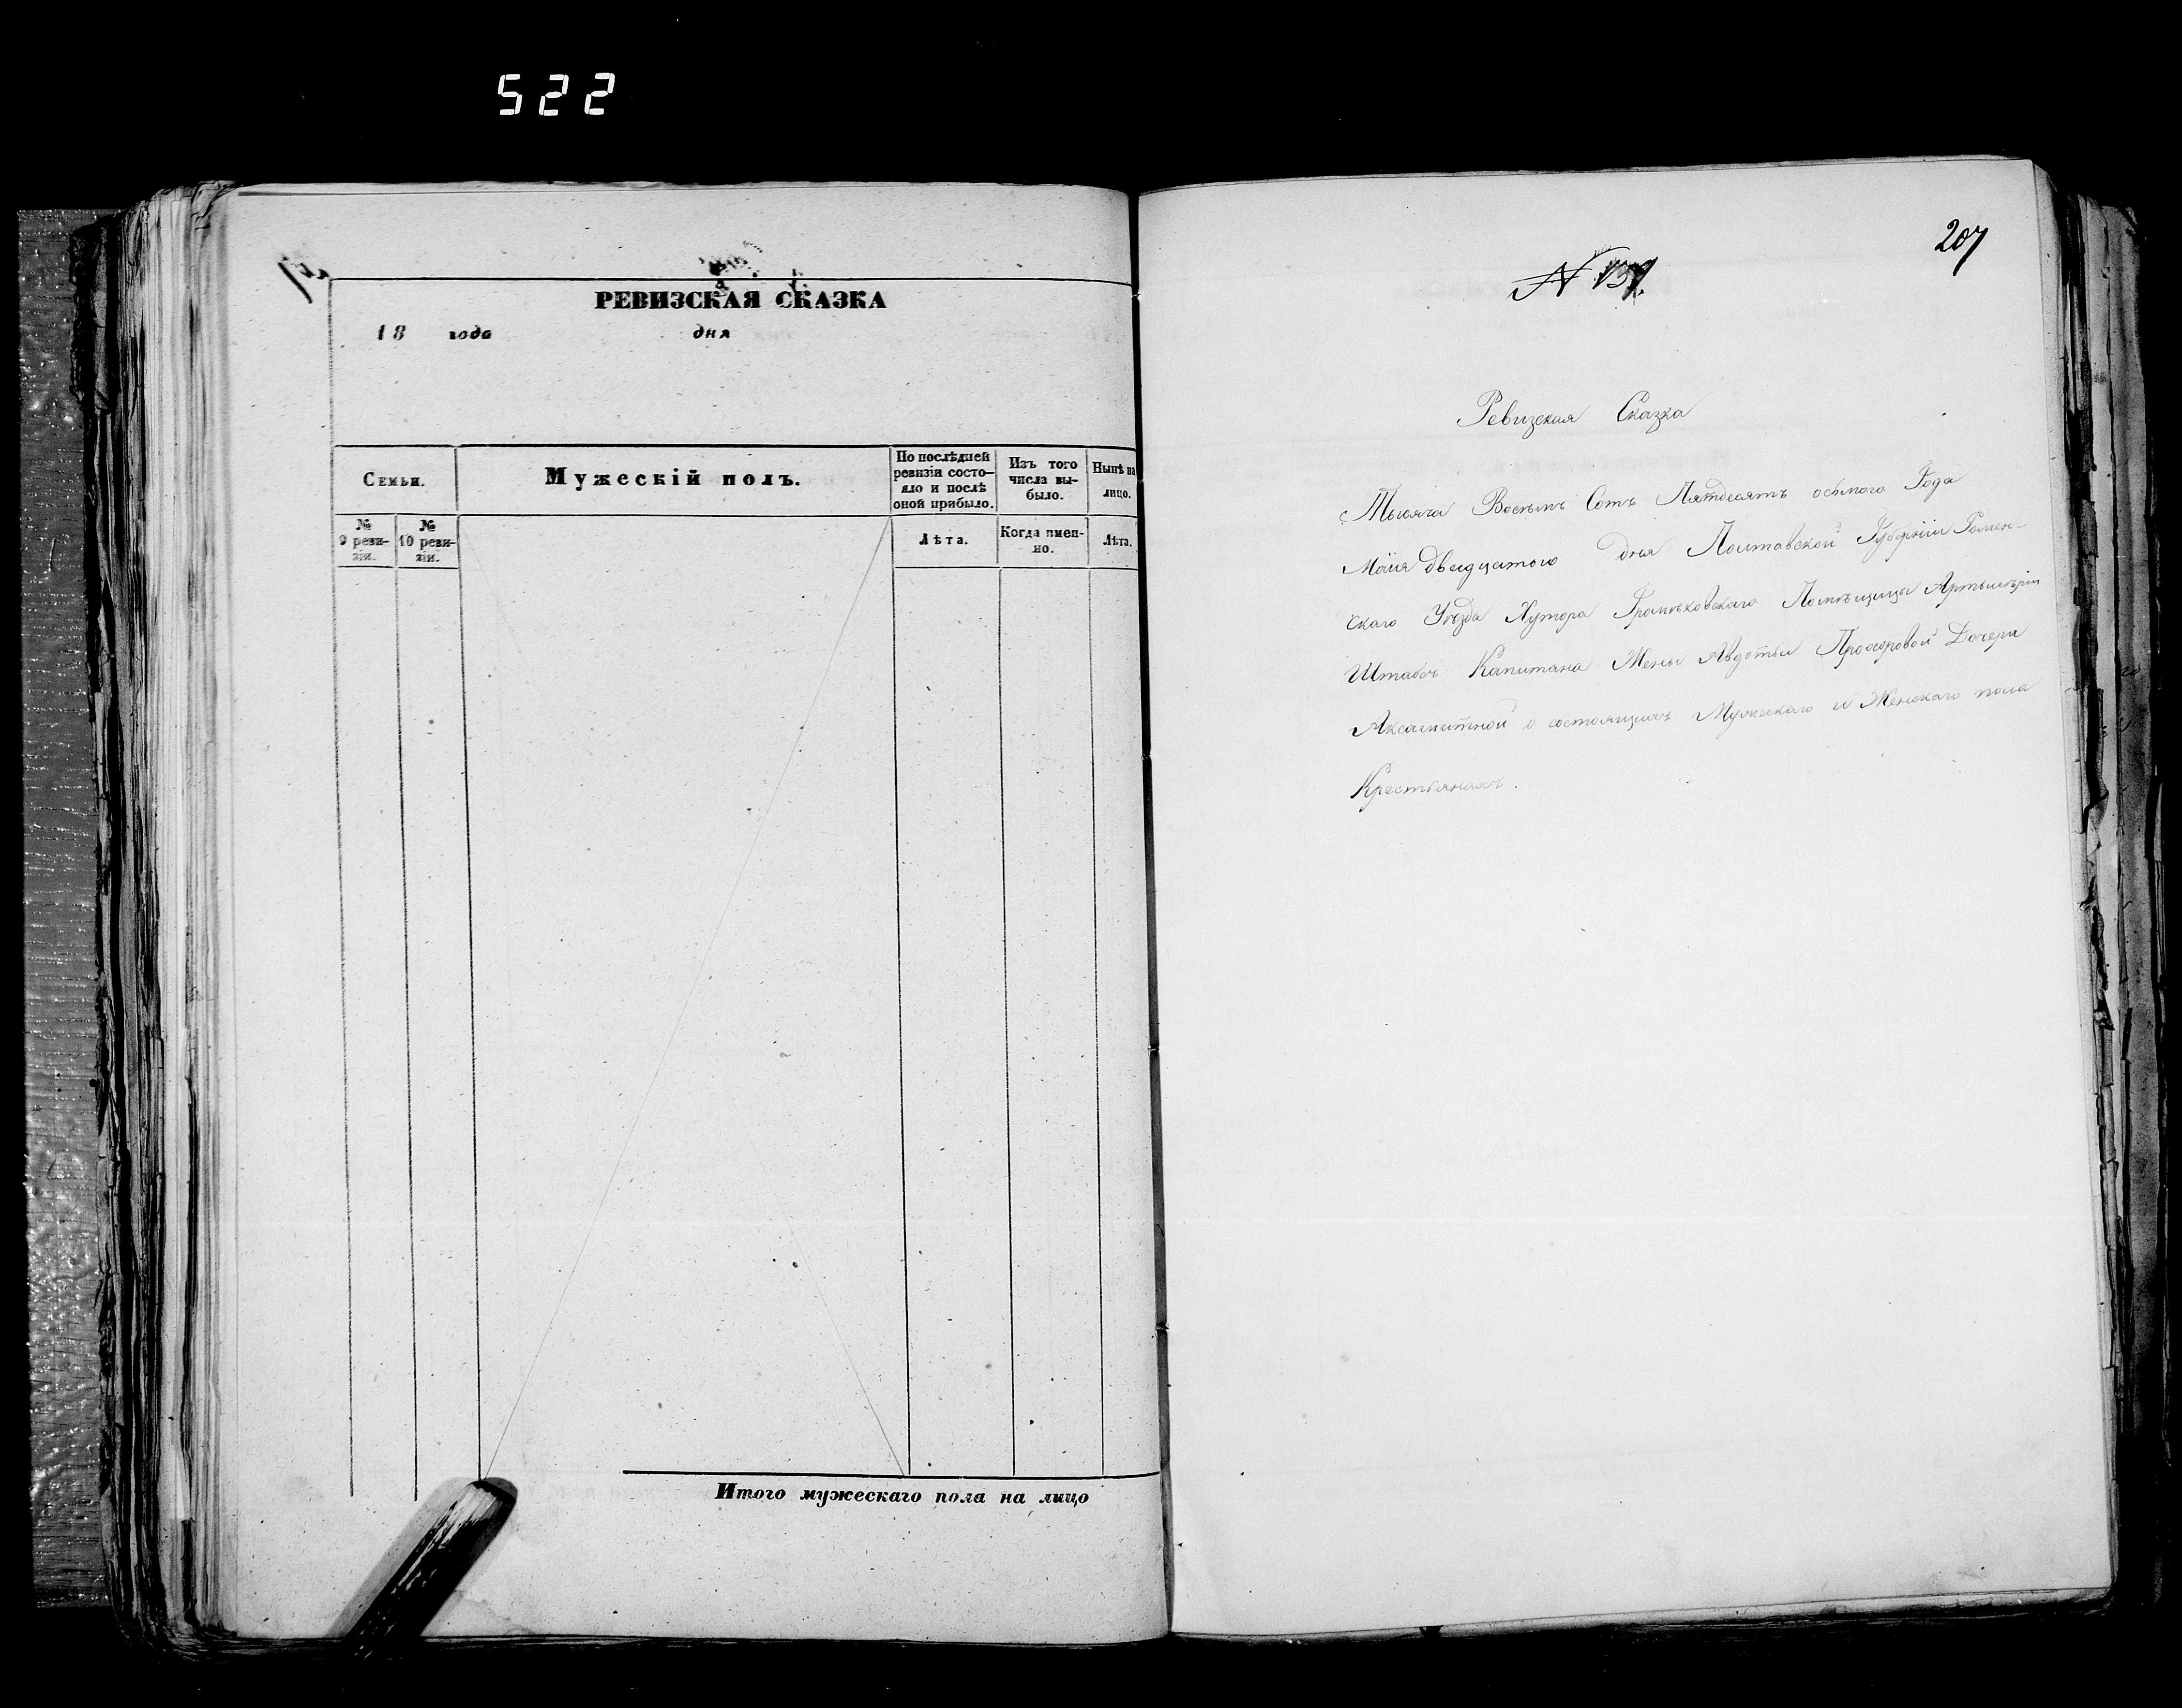 522
РЕВИЗСКАЯ СКАЗКА
18 года дня
Семьи.
Мужескій полъ.
По послѣдней
ревизіи состо-
яло и послѣ
оной прибыло.
Изъ того
числа вы-
было.
Нынѣ на
лицо.
№
9 реви-
зіи.
№
10 реви-
зіи.
Лѣта.
Когда имен-
но.
Лѣта.
Итого мужескаго пола на лицо
207
N
Ревизская Сказка
Тысяча Восемъ Сотъ Пятдесятъ осьмого Года
Маія двадцатого дня Полтавской Губерніи Ромен-
скаго Уѣзда Хутора Помѣщицы Артилеріи
Штабсъ Капитана Жены Авдотьи Прохоровой Дочери
Аксамитной о состоящихъ Мужескаго и Женскаго пола
Крестьянахъ.